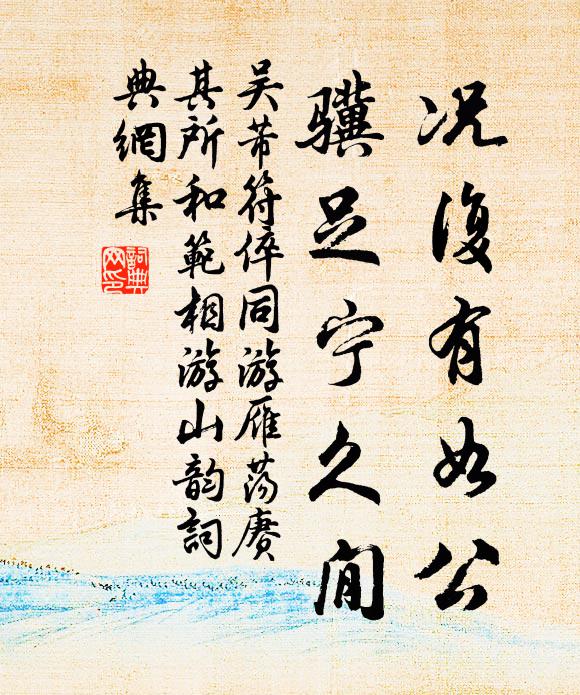 况復有如公
驥足宁久閒
吴芾符倅同游雁蕩賡
其所和範相游山韵詞
典網集
詞典網印